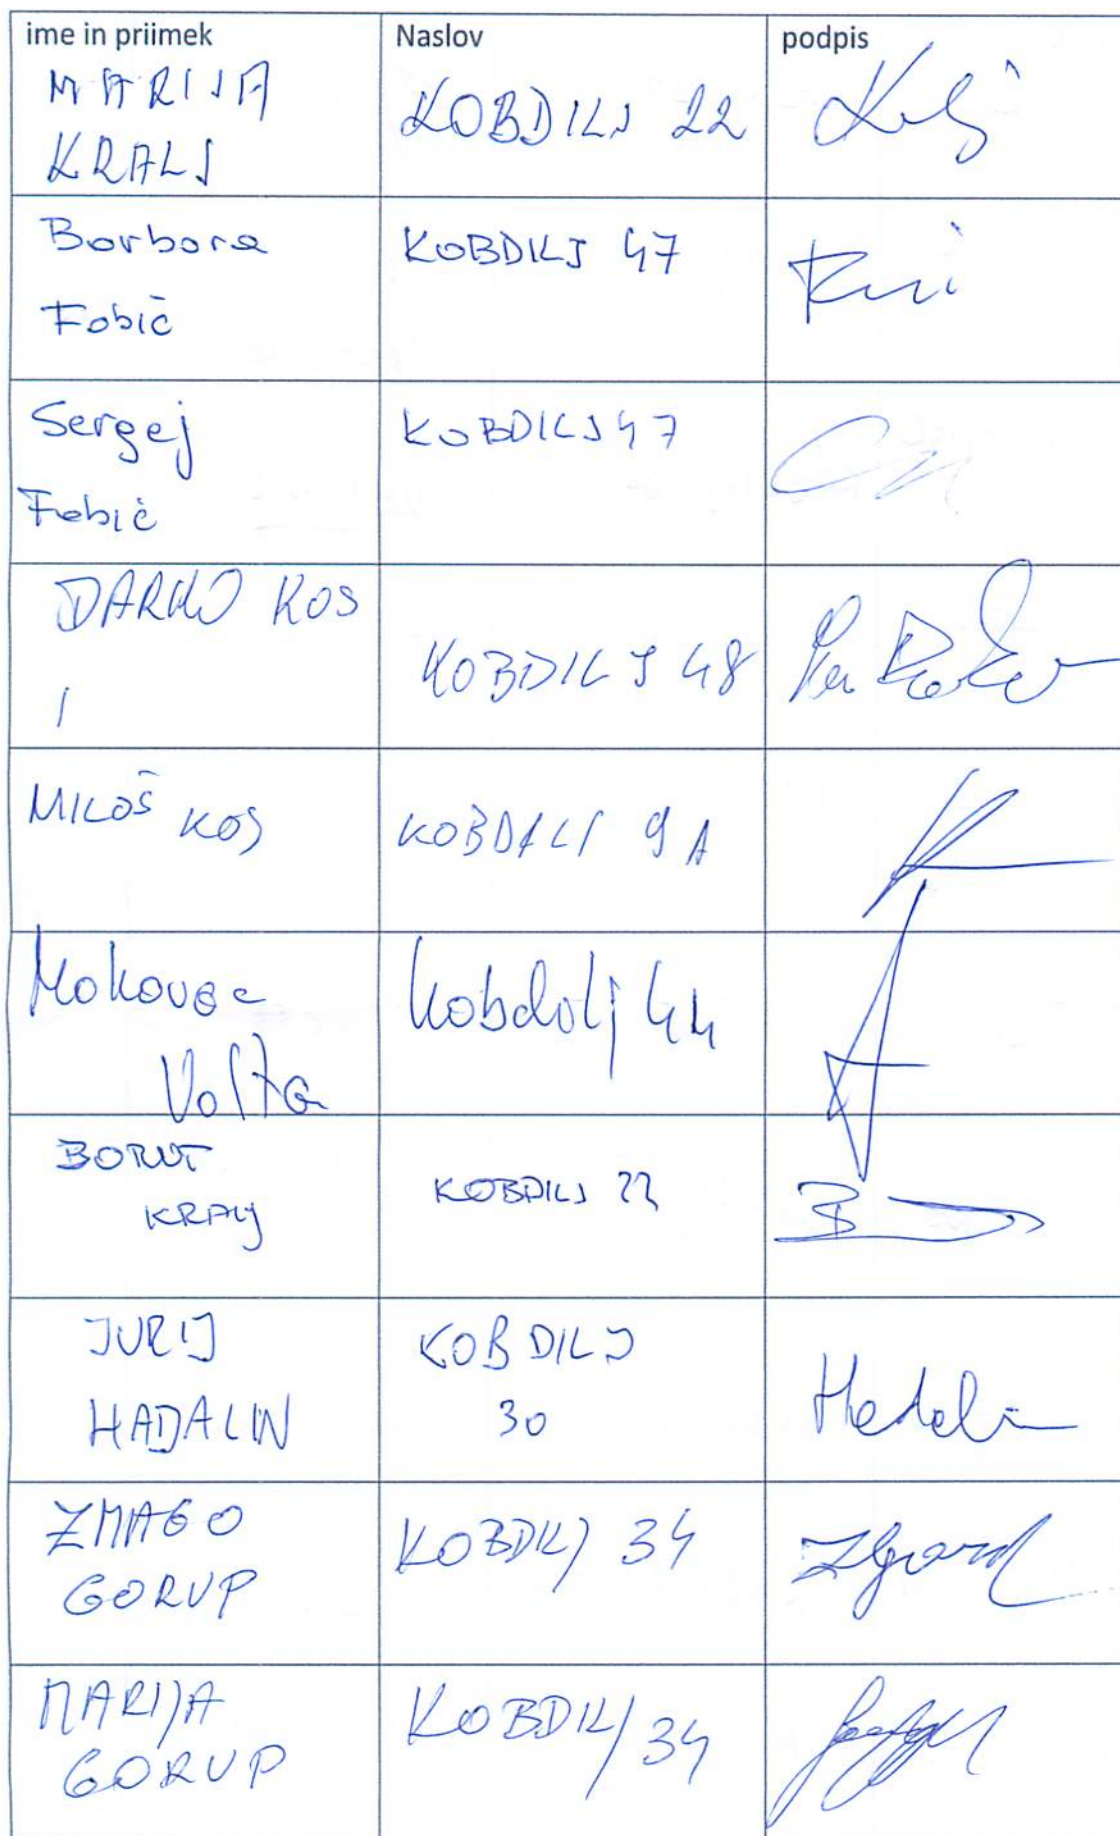 ime in priimek Naslov podpis
MARIJA
KRALJ
KOBDILJ 22
Barbara
Fabič
KOBDILJ 47
Sergej
Fabič
KOBDILJ 47
DARKO KOS
KOBDILJ 48
MILOŠ KOS
KOBDILJ 9A
Kobdilj 44
BORUT
KRALJ
KOBDILJ 22
JURIJ
HADALIN
KOBDILJ
30
Hadalin
ZMAGO
GORUP
KOBDILJ 34
MARIJA
GORUP
KOBDILJ 34